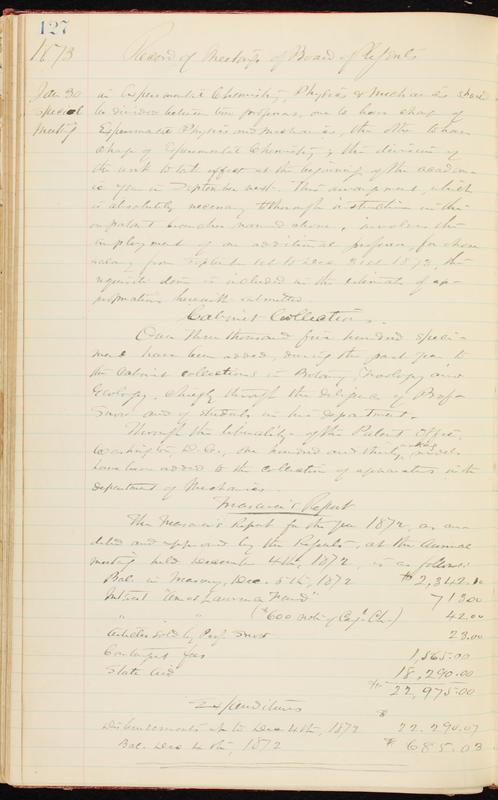 127
1873 Record of Meetings of Board of Regents
Jan 30 in Experimental Chemistry, Physics & Mechanics should
special be divided between two professors, one to have charge of
meeting Experimental Physics and Mechanics, the other to have
charge of Experimental Chemistry; the division of
the work to take effect at the beginning of the academ-
ic year in September next. This arrangement, which
is absolutely necessary to thorough instruction in the
important branches named above, involves the
employment of an additional professor, for whose
salary from Sept 1st to Dec 31st 1873, the
requisite sum is included in the estimate of ap-
propriations herewith submitted.
Cabinet Collections.
Over three thousand five hundred speci-
mens have been added, during the past year, to
the Cabinet collections in Botany, Zoology and
Geology, chiefly through the diligence of Prof.
Snow and of students in his department.
Through the liberality of the Patent Office,
Washington, D.C., one hundred and thirty models
have been added to the collection of apparatus in the
department of Mechanics.
Treasurer's Report
The Treasurer's Report for the year 1872, as au-
dited and approved by the Regents, at the Annual
meeting held December 4th, 1872, is as follows:
Bal. in Treasury, Dec. 5th, 1872 $2,342.
Interest "Amos Lawrence Fund" 713.00
" " ($600 note of Cong'l Ch.) 42.00
Articles sold by Prof. Snow 23.00
Contingent fees 1,565.00
State aid 18,290.00
$22,975.00
Expenditures
Disbursements up to Dec 4th, 1872 $22,290.07
Bal. Dec 4th, 1872 $685.03